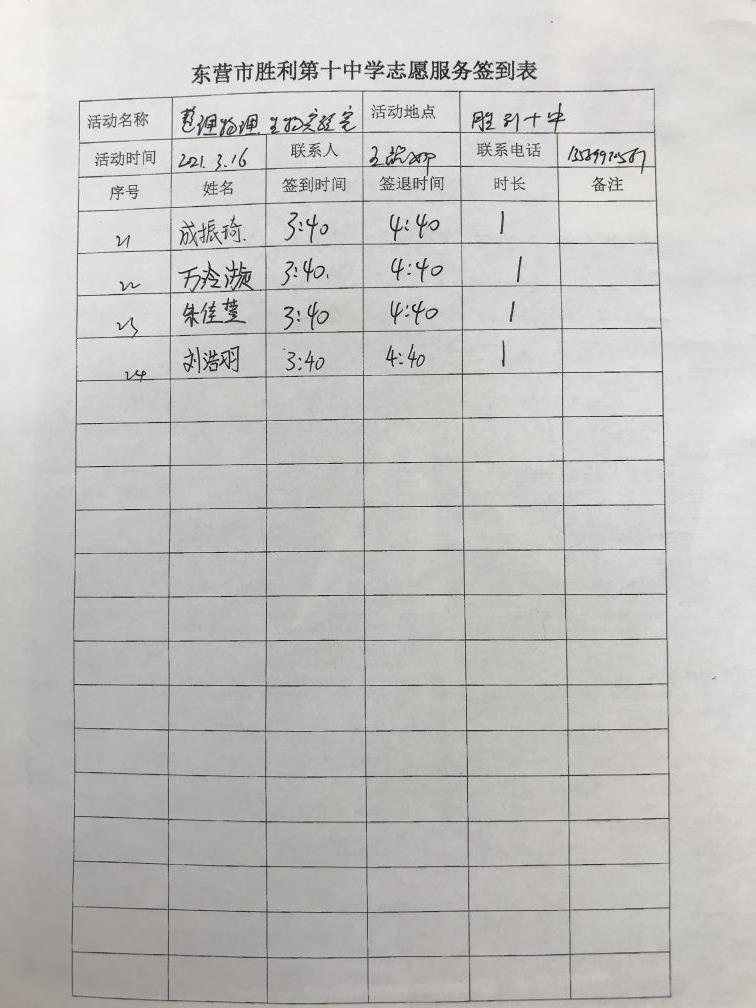 东营市胜利第十中学志愿服务签到表
活动名称 整理物理.生物实验室 活动地点 胜利十中
活动时间 2021.3.16 联系人 王 联系电话
序号 姓名 签到时间 签退时间 时长 备注
21 成振琦. 3:40 4:40 1
22 万泠濒 3:40. 4:40 1
23 朱佳莹 3:40 4:40 1
24 刘浩羽 3:40 4:40 1